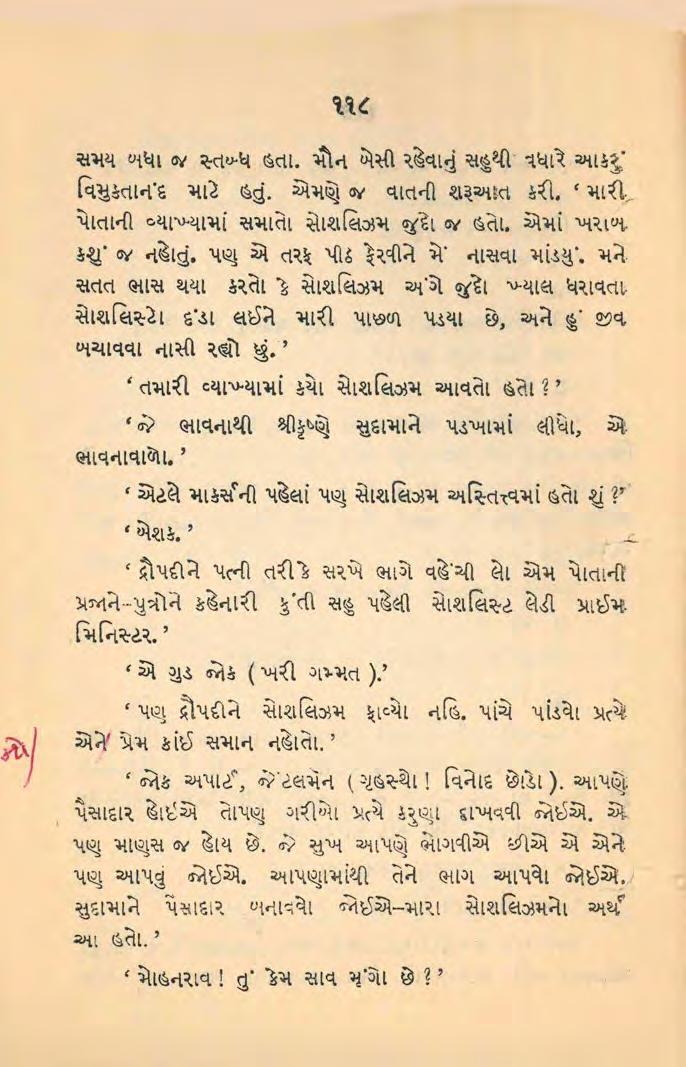 ૧૧૮
સમય બધા જ સ્તબ્ધ હતા. મૌન બેસી રહેવાનું સહુથી વધારે આકરું
વિમુક્તાનંદ માટે હતું. એમણે જ વાતની શરૂઆત કરી. ‘ મારી
પોતાની વ્યાખ્યામાં સમાતો સોશલિઝમ જુદો જ હતો. એમાં ખરાબ
કશું જ નહોતું. પણ એ તરફ પીઠ ફેરવીને મેં નાસવા માંડયું. મને
સતત ભાસ થયા કરતો કે સોશલિઝમ અંગે જુદો ખ્યાલ ધરાવતા
સોશલિસ્ટો દંડા લઈને મારી પાછળ પડયા છે, અને હું જીવ
બચાવવા નાસી રહ્યો છું. ’
‘ તમારી વ્યાખ્યામાં કયો સોશલિઝમ આવતો હતો ? ’
‘ જે ભાવનાથી શ્રીકૃષ્ણે સુદામાને પડખામાં લીધો, એ
ભાવનાવાળો. ’
‘ એટલે માર્ક્સની પહેલાં પણ સોશલિઝમ અસ્તિત્ત્વમાં હતો શું ?’
‘ બેશક. ’
‘ દ્રૌપદીને પત્ની તરીકે સરખે ભાગે વહેંચી લો એમ પોતાની
પ્રજાને–પુત્રોને કહેનારી કુંતી સહુ પહેલી સોશલિસ્ટ લેડી પ્રાઈમ
મિનિસ્ટર. ’
‘ એ ગુડ જોક ( ખરી ગમ્મત ).’
‘ પણ દ્રૌપદીને સોશલિઝમ ફાવ્યો નહિ. પાંચે પાંડવો પ્રત્યે
એને પ્રેમ કાંઈ સમાન નહોતો. ’
‘ જોક અપાર્ટ, જેંટલમૅન ( ગૃહસ્થો ! વિનોદ છોડો ). આપણે
પૈસાદાર હોઈએ તોપણ ગરીબો પ્રત્યે કરુણા દાખવવી જોઈએ. એ
પણ માણસ જ હોય છે. જે સુખ આપણે ભોગવીએ છીએ એ એને
પણ આપવું જોઈએ. આપણામાંથી તેને ભાગ આપવો જોઈએ.
સુદામાને પૈસાદાર બનાવવો જોઈએ–મારા સોશલિઝમનો અર્થ
આ હતો. ’
‘ મોહનરાવ ! તું કેમ સાવ મૂંગો છે ? ’